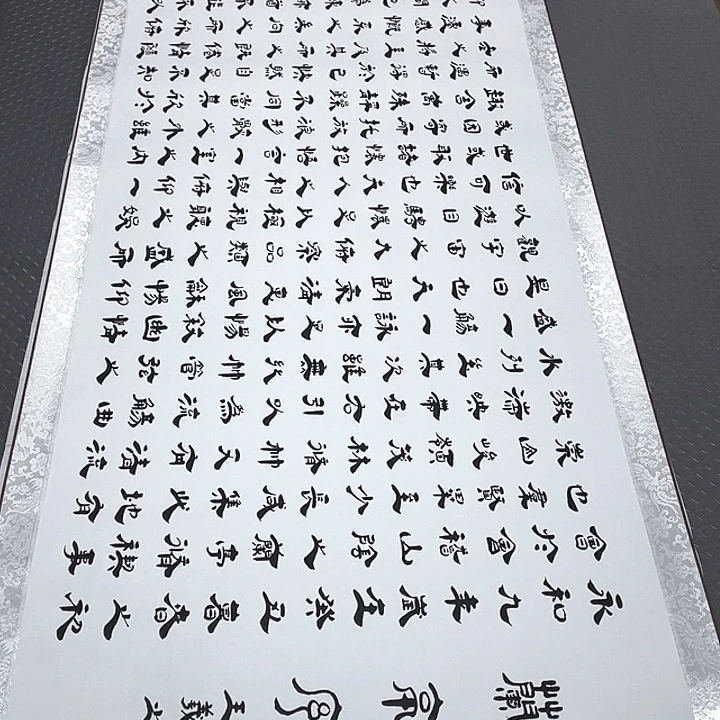 蘭亭序
王羲之
永和九年歲在癸丑暮春之初
會於會稽山陰之蘭亭脩禊事
也羣賢畢至少長咸集此地有
崇山峻嶺茂林脩竹又有清流
激湍映帶左右引以為流觴曲
水列坐其次雖無絲竹管弦之
盛一觴一詠亦足以暢敘幽情
是日也天朗氣清惠風和暢仰
觀宇宙之大俯察品類之盛所
以遊目騁懷足以極視聽之娛
信可樂也夫人之相與俯仰一
世或取諸懷抱悟言一室之內
或因寄所託放浪形骸之外雖
趣舍萬殊靜躁不同當其欣於
所遇暫得於己快然自足不知
老之將至及其所之既惓情隨
事遷感慨係之矣向之所欣俛